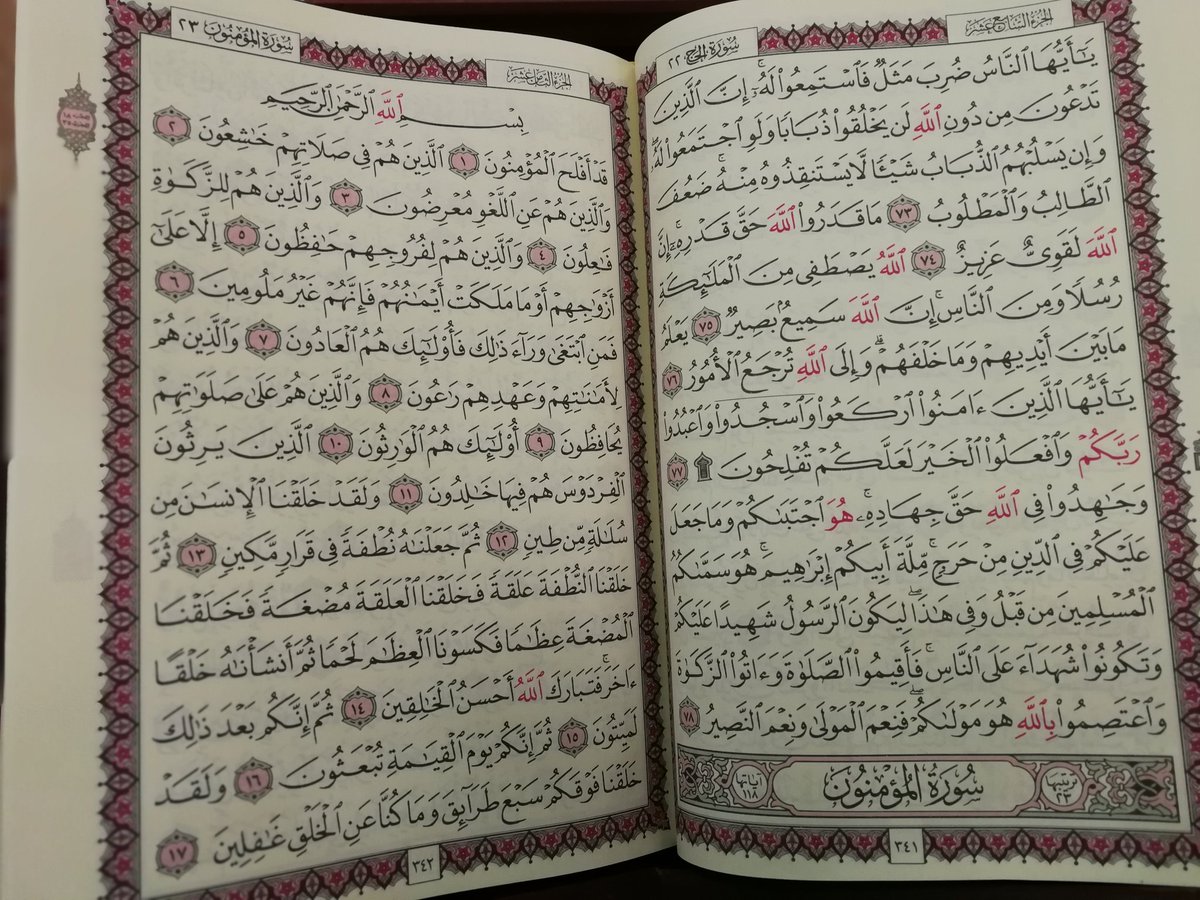 سُورَةُ الحَجِّ ٢٢
الجُزْءُ السَّابِعَ عَشَرَ
يَٰٓأَيُّهَا ٱلنَّاسُ ضُرِبَ مَثَلٌ فَٱسْتَمِعُوا۟ لَهُۥٓ ۚ إِنَّ ٱلَّذِينَ
تَدْعُونَ مِن دُونِ ٱللَّهِ لَن يَخْلُقُوا۟ ذُبَابًا وَلَوِ ٱجْتَمَعُوا۟ لَهُۥ ۖ
وَإِن يَسْلُبْهُمُ ٱلذُّبَابُ شَيْـًٔا لَّا يَسْتَنقِذُوهُ مِنْهُ ۚ ضَعُفَ
ٱلطَّالِبُ وَٱلْمَطْلُوبُ ٧٣ مَا قَدَرُوا۟ ٱللَّهَ حَقَّ قَدْرِهِۦٓ ۗ إِنَّ
ٱللَّهَ لَقَوِىٌّ عَزِيزٌ ٧٤ ٱللَّهُ يَصْطَفِى مِنَ ٱلْمَلَٰٓئِكَةِ
رُسُلًا وَمِنَ ٱلنَّاسِ ۚ إِنَّ ٱللَّهَ سَمِيعٌۢ بَصِيرٌ ٧٥ يَعْلَمُ
مَا بَيْنَ أَيْدِيهِمْ وَمَا خَلْفَهُمْ ۗ وَإِلَى ٱللَّهِ تُرْجَعُ ٱلْأُمُورُ ٧٦
يَٰٓأَيُّهَا ٱلَّذِينَ ءَامَنُوا۟ ٱرْكَعُوا۟ وَٱسْجُدُوا۟ وَٱعْبُدُوا۟
رَبَّكُمْ وَٱفْعَلُوا۟ ٱلْخَيْرَ لَعَلَّكُمْ تُفْلِحُونَ ۩ ٧٧
وَجَٰهِدُوا۟ فِى ٱللَّهِ حَقَّ جِهَادِهِۦ ۚ هُوَ ٱجْتَبَىٰكُمْ وَمَا جَعَلَ
عَلَيْكُمْ فِى ٱلدِّينِ مِنْ حَرَجٍ ۚ مِّلَّةَ أَبِيكُمْ إِبْرَٰهِيمَ ۚ هُوَ سَمَّىٰكُمُ
ٱلْمُسْلِمِينَ مِن قَبْلُ وَفِى هَٰذَا لِيَكُونَ ٱلرَّسُولُ شَهِيدًا عَلَيْكُمْ
وَتَكُونُوا۟ شُهَدَآءَ عَلَى ٱلنَّاسِ ۚ فَأَقِيمُوا۟ ٱلصَّلَوٰةَ وَءَاتُوا۟ ٱلزَّكَوٰةَ
وَٱعْتَصِمُوا۟ بِٱللَّهِ هُوَ مَوْلَىٰكُمْ ۖ فَنِعْمَ ٱلْمَوْلَىٰ وَنِعْمَ ٱلنَّصِيرُ ٧٨
ترتيبها ٢٣
سُورَةُ المُؤْمِنُونَ
آياتها ١١٨
٣٤١
سُورَةُ المُؤْمِنُونَ ٢٣
الجُزْءُ الثَّامِنَ عَشَرَ
بِسْمِ ٱللَّهِ ٱلرَّحْمَٰنِ ٱلرَّحِيمِ
قَدْ أَفْلَحَ ٱلْمُؤْمِنُونَ ١ ٱلَّذِينَ هُمْ فِى صَلَاتِهِمْ خَٰشِعُونَ ٢
وَٱلَّذِينَ هُمْ عَنِ ٱللَّغْوِ مُعْرِضُونَ ٣ وَٱلَّذِينَ هُمْ لِلزَّكَوٰةِ
فَٰعِلُونَ ٤ وَٱلَّذِينَ هُمْ لِفُرُوجِهِمْ حَٰفِظُونَ ٥ إِلَّا عَلَىٰٓ
أَزْوَٰجِهِمْ أَوْ مَا مَلَكَتْ أَيْمَٰنُهُمْ فَإِنَّهُمْ غَيْرُ مَلُومِينَ ٦
فَمَنِ ٱبْتَغَىٰ وَرَآءَ ذَٰلِكَ فَأُو۟لَٰٓئِكَ هُمُ ٱلْعَادُونَ ٧ وَٱلَّذِينَ هُمْ
لِأَمَٰنَٰتِهِمْ وَعَهْدِهِمْ رَٰعُونَ ٨ وَٱلَّذِينَ هُمْ عَلَىٰ صَلَوَٰتِهِمْ
يُحَافِظُونَ ٩ أُو۟لَٰٓئِكَ هُمُ ٱلْوَٰرِثُونَ ١٠ ٱلَّذِينَ يَرِثُونَ
ٱلْفِرْدَوْسَ هُمْ فِيهَا خَٰلِدُونَ ١١ وَلَقَدْ خَلَقْنَا ٱلْإِنسَٰنَ مِن
سُلَٰلَةٍ مِّن طِينٍ ١٢ ثُمَّ جَعَلْنَٰهُ نُطْفَةً فِى قَرَارٍ مَّكِينٍ ١٣ ثُمَّ
خَلَقْنَا ٱلنُّطْفَةَ عَلَقَةً فَخَلَقْنَا ٱلْعَلَقَةَ مُضْغَةً فَخَلَقْنَا
ٱلْمُضْغَةَ عِظَٰمًا فَكَسَوْنَا ٱلْعِظَٰمَ لَحْمًا ثُمَّ أَنشَأْنَٰهُ خَلْقًا
ءَاخَرَ ۚ فَتَبَارَكَ ٱللَّهُ أَحْسَنُ ٱلْخَٰلِقِينَ ١٤ ثُمَّ إِنَّكُم بَعْدَ ذَٰلِكَ
لَمَيِّتُونَ ١٥ ثُمَّ إِنَّكُمْ يَوْمَ ٱلْقِيَٰمَةِ تُبْعَثُونَ ١٦ وَلَقَدْ
خَلَقْنَا فَوْقَكُمْ سَبْعَ طَرَآئِقَ وَمَا كُنَّا عَنِ ٱلْخَلْقِ غَٰفِلِينَ ١٧
٣٤٢